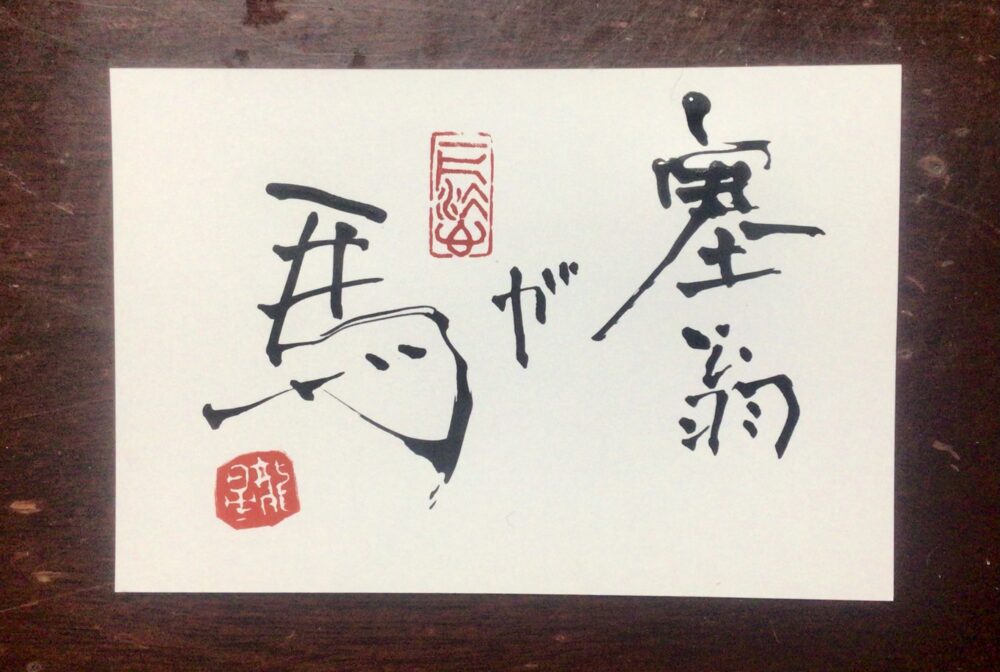 塞翁
が
馬